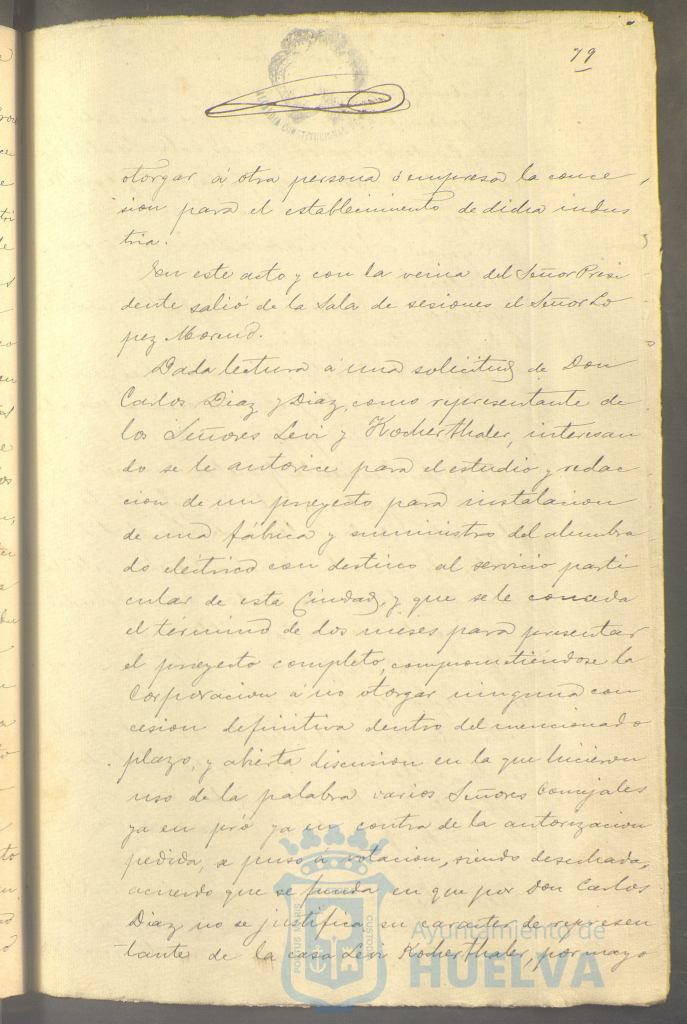 79
otorgar á otra persona ó empresa la conce
sion para el establecimiento de dicha indus
tria.
En este acto y con la venia del Señor Presi
dente salió de la Sala de sesiones el Señor Lo
pez Moreno.
Dada lectura á una solicitud de Don
Carlos Diaz y Diaz, como representante de
los Señores Levi y Kocherthaler, interesan
do se le autorice para el estudio y redac
cion de un proyecto para instalacion
de una fábrica y suministro del alumbra
do eléctrico con destino al servicio parti
cular de esta Ciudad, y que se le conceda
el término de dos meses para presentar
el proyecto completo, comprometiéndose la
Corporacion á no otorgar ninguna con
cesion definitiva dentro del mencionado
plazo, y abierta discusion en la que hicieron
uso de la palabra varios Señores Concejales
ya en pró ya en contra de la autorizacion
pedida, se puso á votacion, siendo desechada,
acuerdo que se funda en que por Don Carlos
Diaz no se justifica su caracter de represen
tante de la casa Levi Kocherthaler, por mayo
PORTUS MARIS
CUSTODIA
Ayuntamiento de
HUELVA